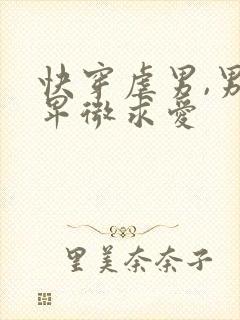 快穿虐男,男
卑微求爱
里美奈奈子